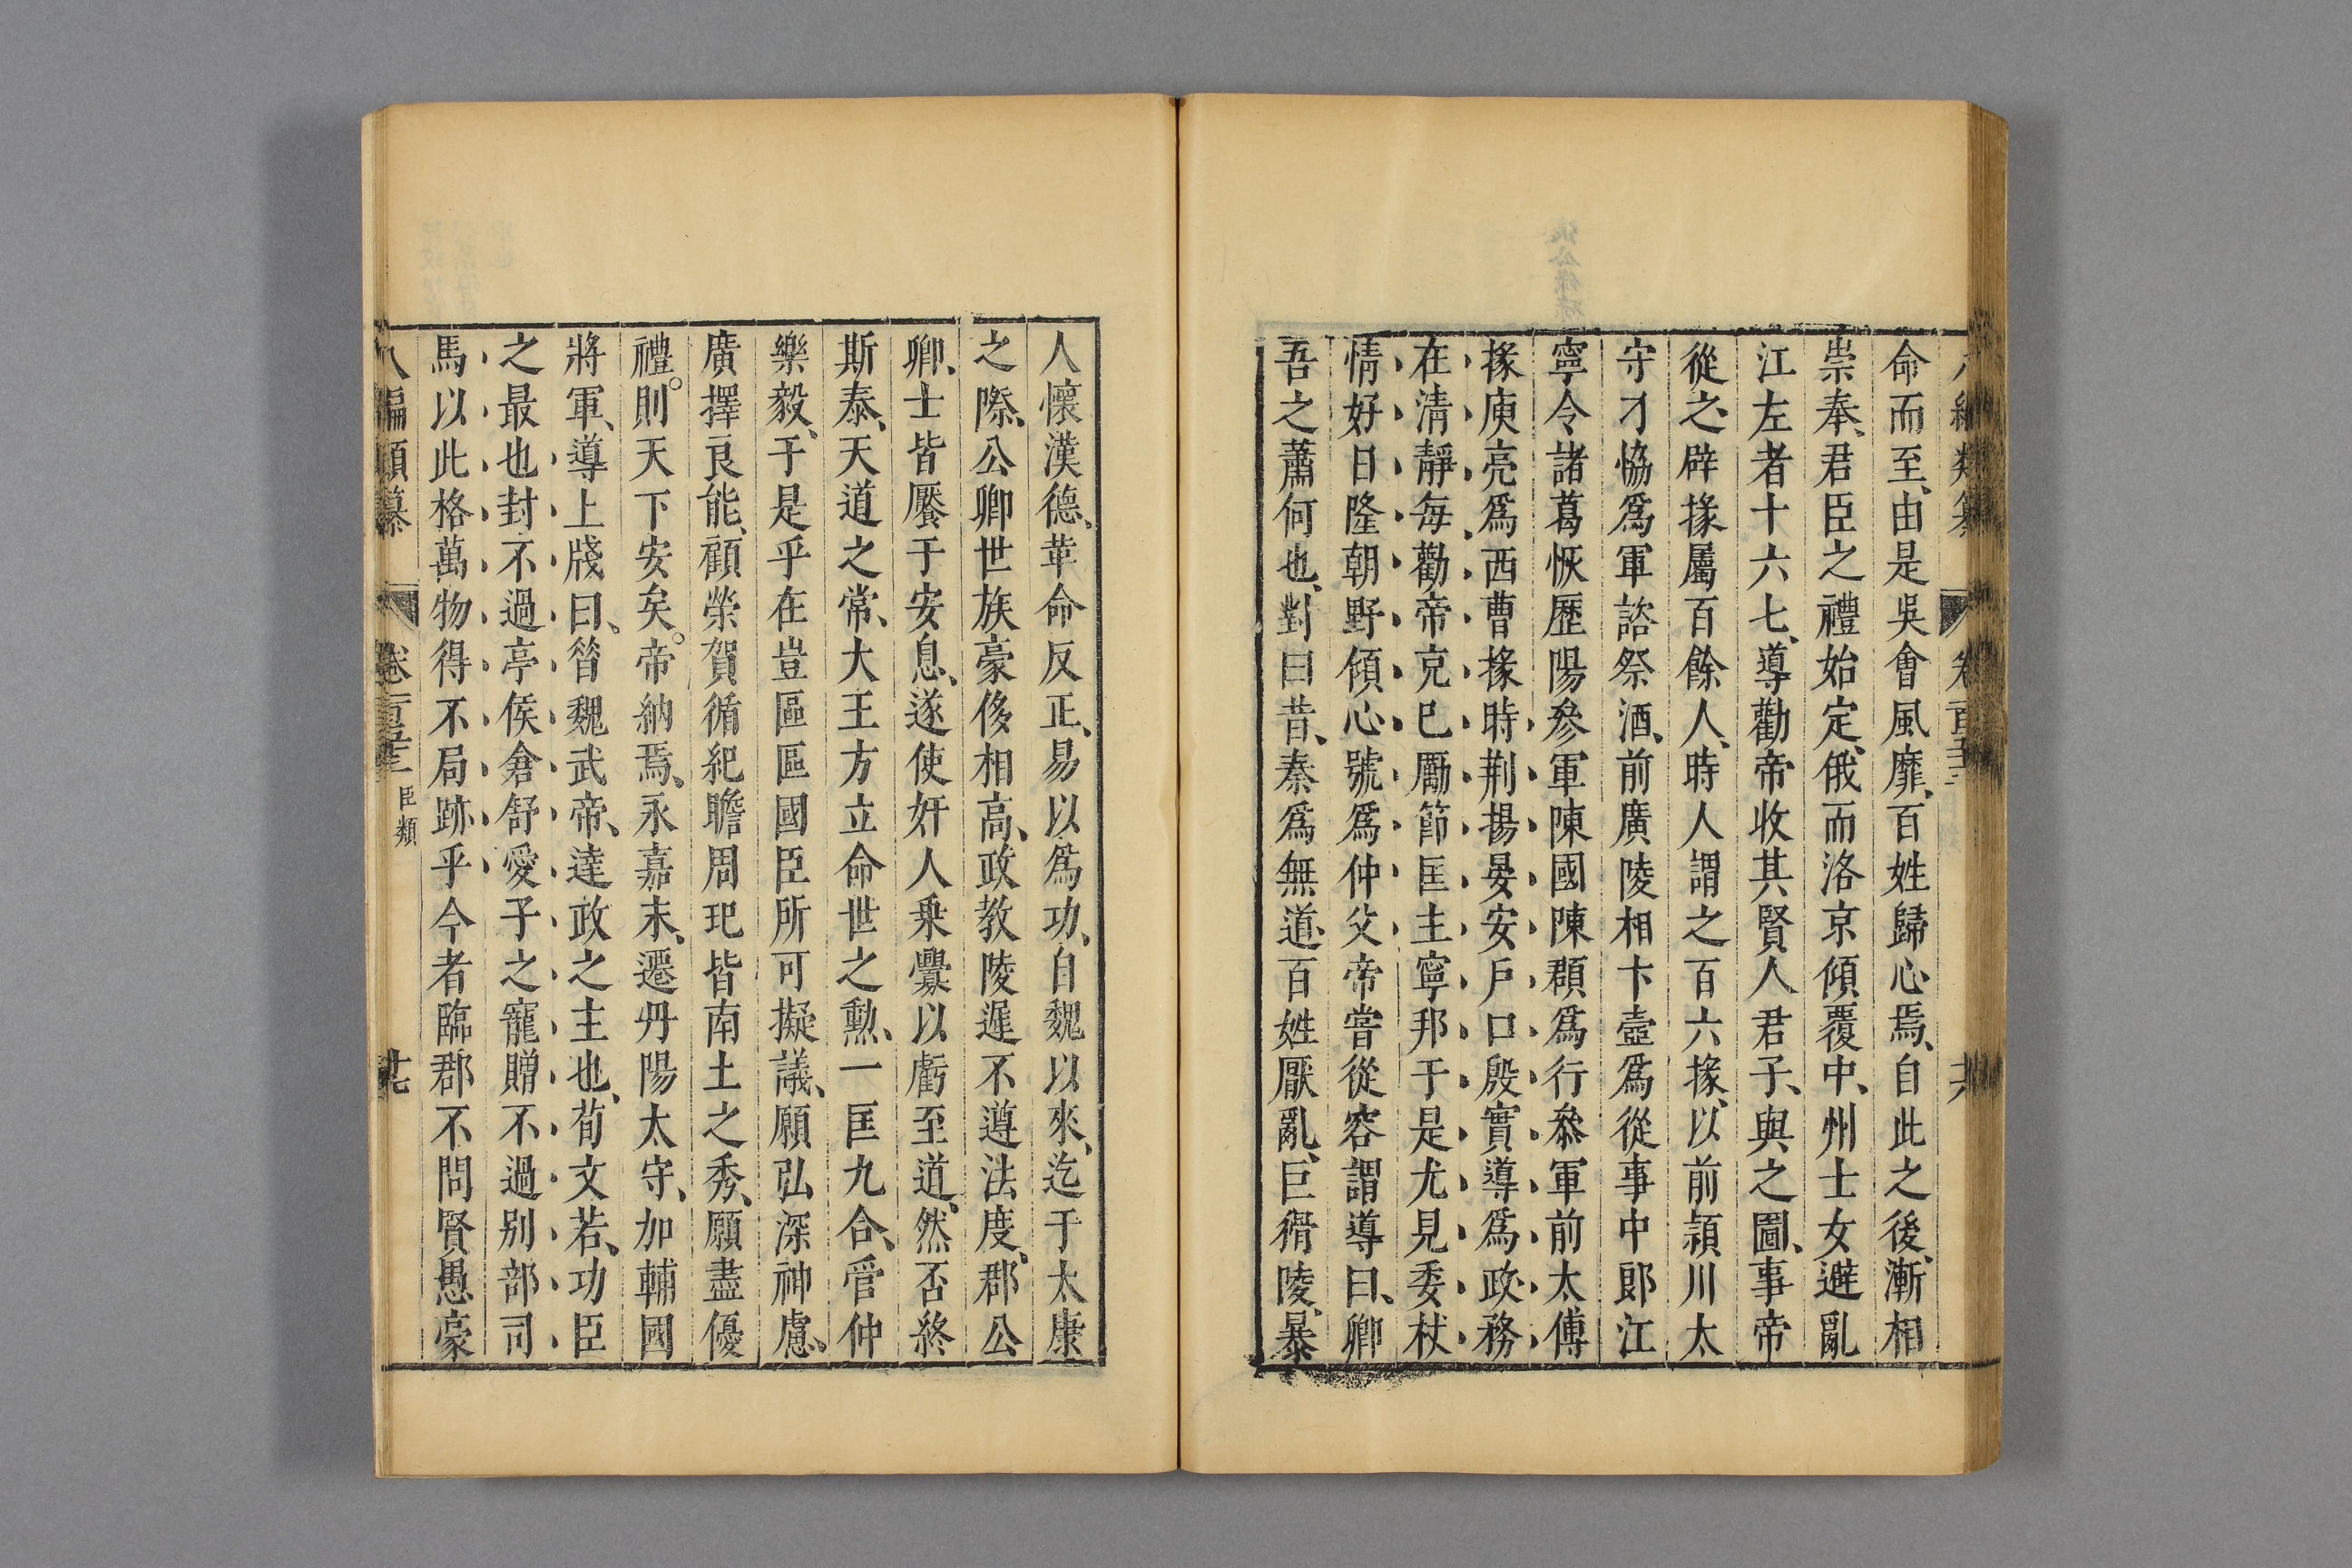 命而至、由是吳會風靡、百姓歸心焉、自此之後、漸相
崇奉、君臣之禮始定、俄而洛京傾覆、中州士女避亂
江左者十六七、導勸帝收其賢人君子、與之圖事、帝
從之、辟掾屬百餘人、時人謂之百六掾、以前潁川太
守刁恊爲軍諮祭酒、前廣陵相卞壼爲從事中郎、江
寧令諸葛恢歷陽參軍陳國陳頵爲行叅軍前太傅
掾庾亮爲西曹掾時荆揚晏安戶口殷實導爲政務
在清靜每勸帝克巳勵節匡主寧邦于是尤見委杖
情好日隆朝野傾心號爲仲父帝嘗從容謂導曰、卿
吾之蕭何也、對曰昔、秦爲無道、百姓厭亂、巨猾陵暴
人懷漢德、革命反正、易以爲功、自魏以來、迄于太康
之際、公卿世族豪侈相高、政教陵遲不遵法度、郡公
卿、士皆饜于安息、遂使奸人乗釁以虧至道、然否終
斯泰、天道之常、大王方立命世之勲、一匡九合、管仲
樂毅、于是乎在豈區區國臣所可擬議、願弘深神慮、
廣擇良能、顧榮賀循紀瞻周玘皆南土之秀、願盡優
禮。則天下安矣。帝納焉、永嘉末、遷丹陽太守、加輔國
將軍、導上牋曰、昝魏武帝、達政之主也、荀文若、功臣
之最也封不過亭侯倉舒愛子之寵贈不過别部司
馬以此格萬物得不局跡乎今者臨郡不問賢愚豪
八編類纂 卷一百五十三 臣類 十七